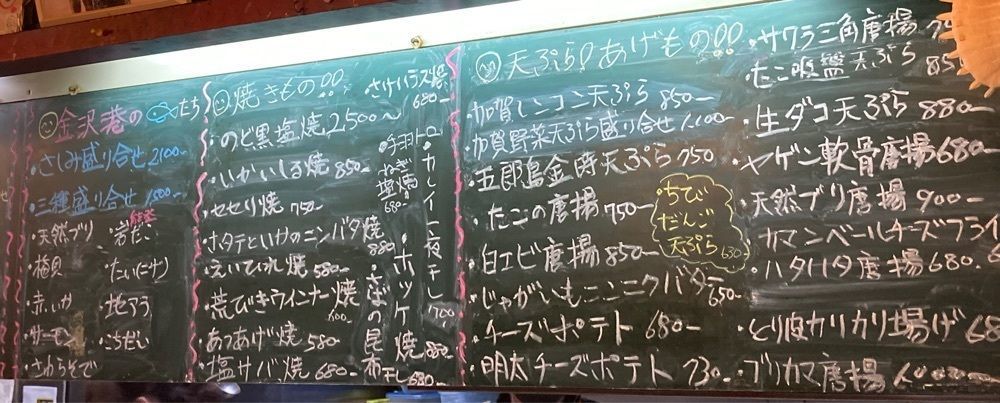 金沢港の たち
さしみ盛り合せ 2100-
三種盛り合せ 1500-
天然ブリ
梅貝
赤いか
サーモン
岩だこ
たい(ニナ)
地アラ
こちだい
焼きもの!!
のど黒塩焼 2500~
いかいしる焼 850-
セセリ焼 750-
ホタテといかのニンバタ焼 880-
えいひれ焼 580-
荒びきウインナー焼
あつあげ焼 580-
塩サバ焼 680-
さけハラス焼 680-
ねぎ塩焼 680-
カレイ一夜干し 700
ホッケ焼 880-
さばの昆布干し 680-
天ぷら!あげもの!!
加賀レンコン天ぷら 850-
加賀野菜天ぷら盛り合せ 1,100-
五郎島金時天ぷら 750
たこの唐揚 750-
白エビ唐揚 850-
じゃがいもニンニクバター 650-
チーズポテト 680-
明太チーズポテト 730-
ちび
だんご
天ぷら 630-
サワラ三角唐揚
たこ吸盤天ぷら 850
生ダコ天ぷら 880-
ヤゲン軟骨唐揚 680-
天然ブリ唐揚 900-
カマンベールチーズフライ
ハタハタ唐揚 680.
とり皮カリカリ揚げ 68
ブリカマ唐揚